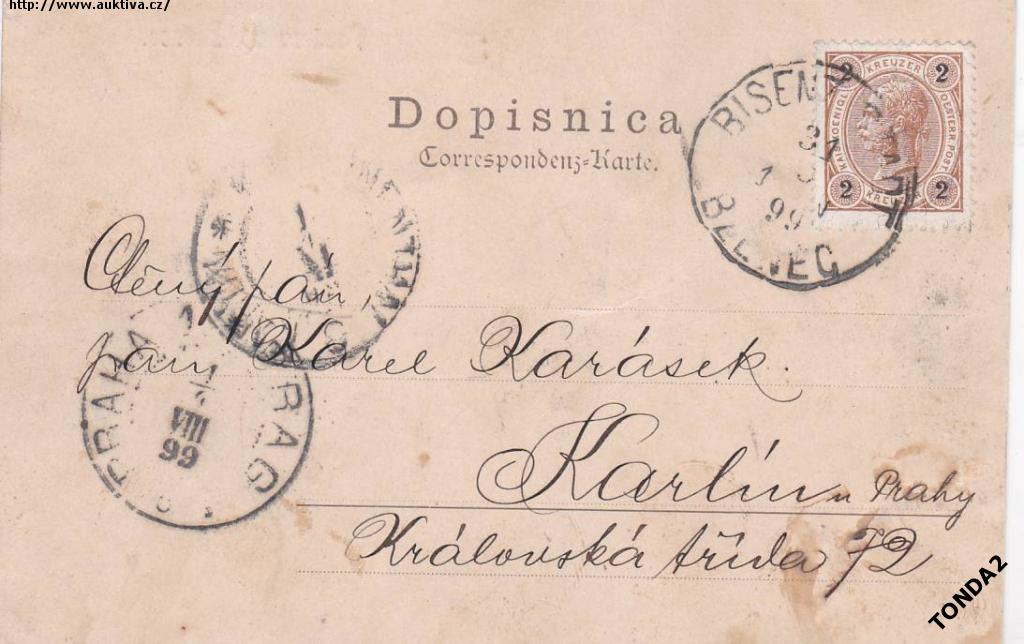 http://www.auktiva.cz/
Dopisnica
Correspondenz-Karte.
2 KREUZER 2
KAIS. KOENIGL. OESTERR. POST
2 KREUZER 2
BISENZ
31
99
Ctěný pán,
pan Karel Karásek.
Karlín u Prahy
Královská třída 72
PRAHA PRAG
VIII
99
TONDA2